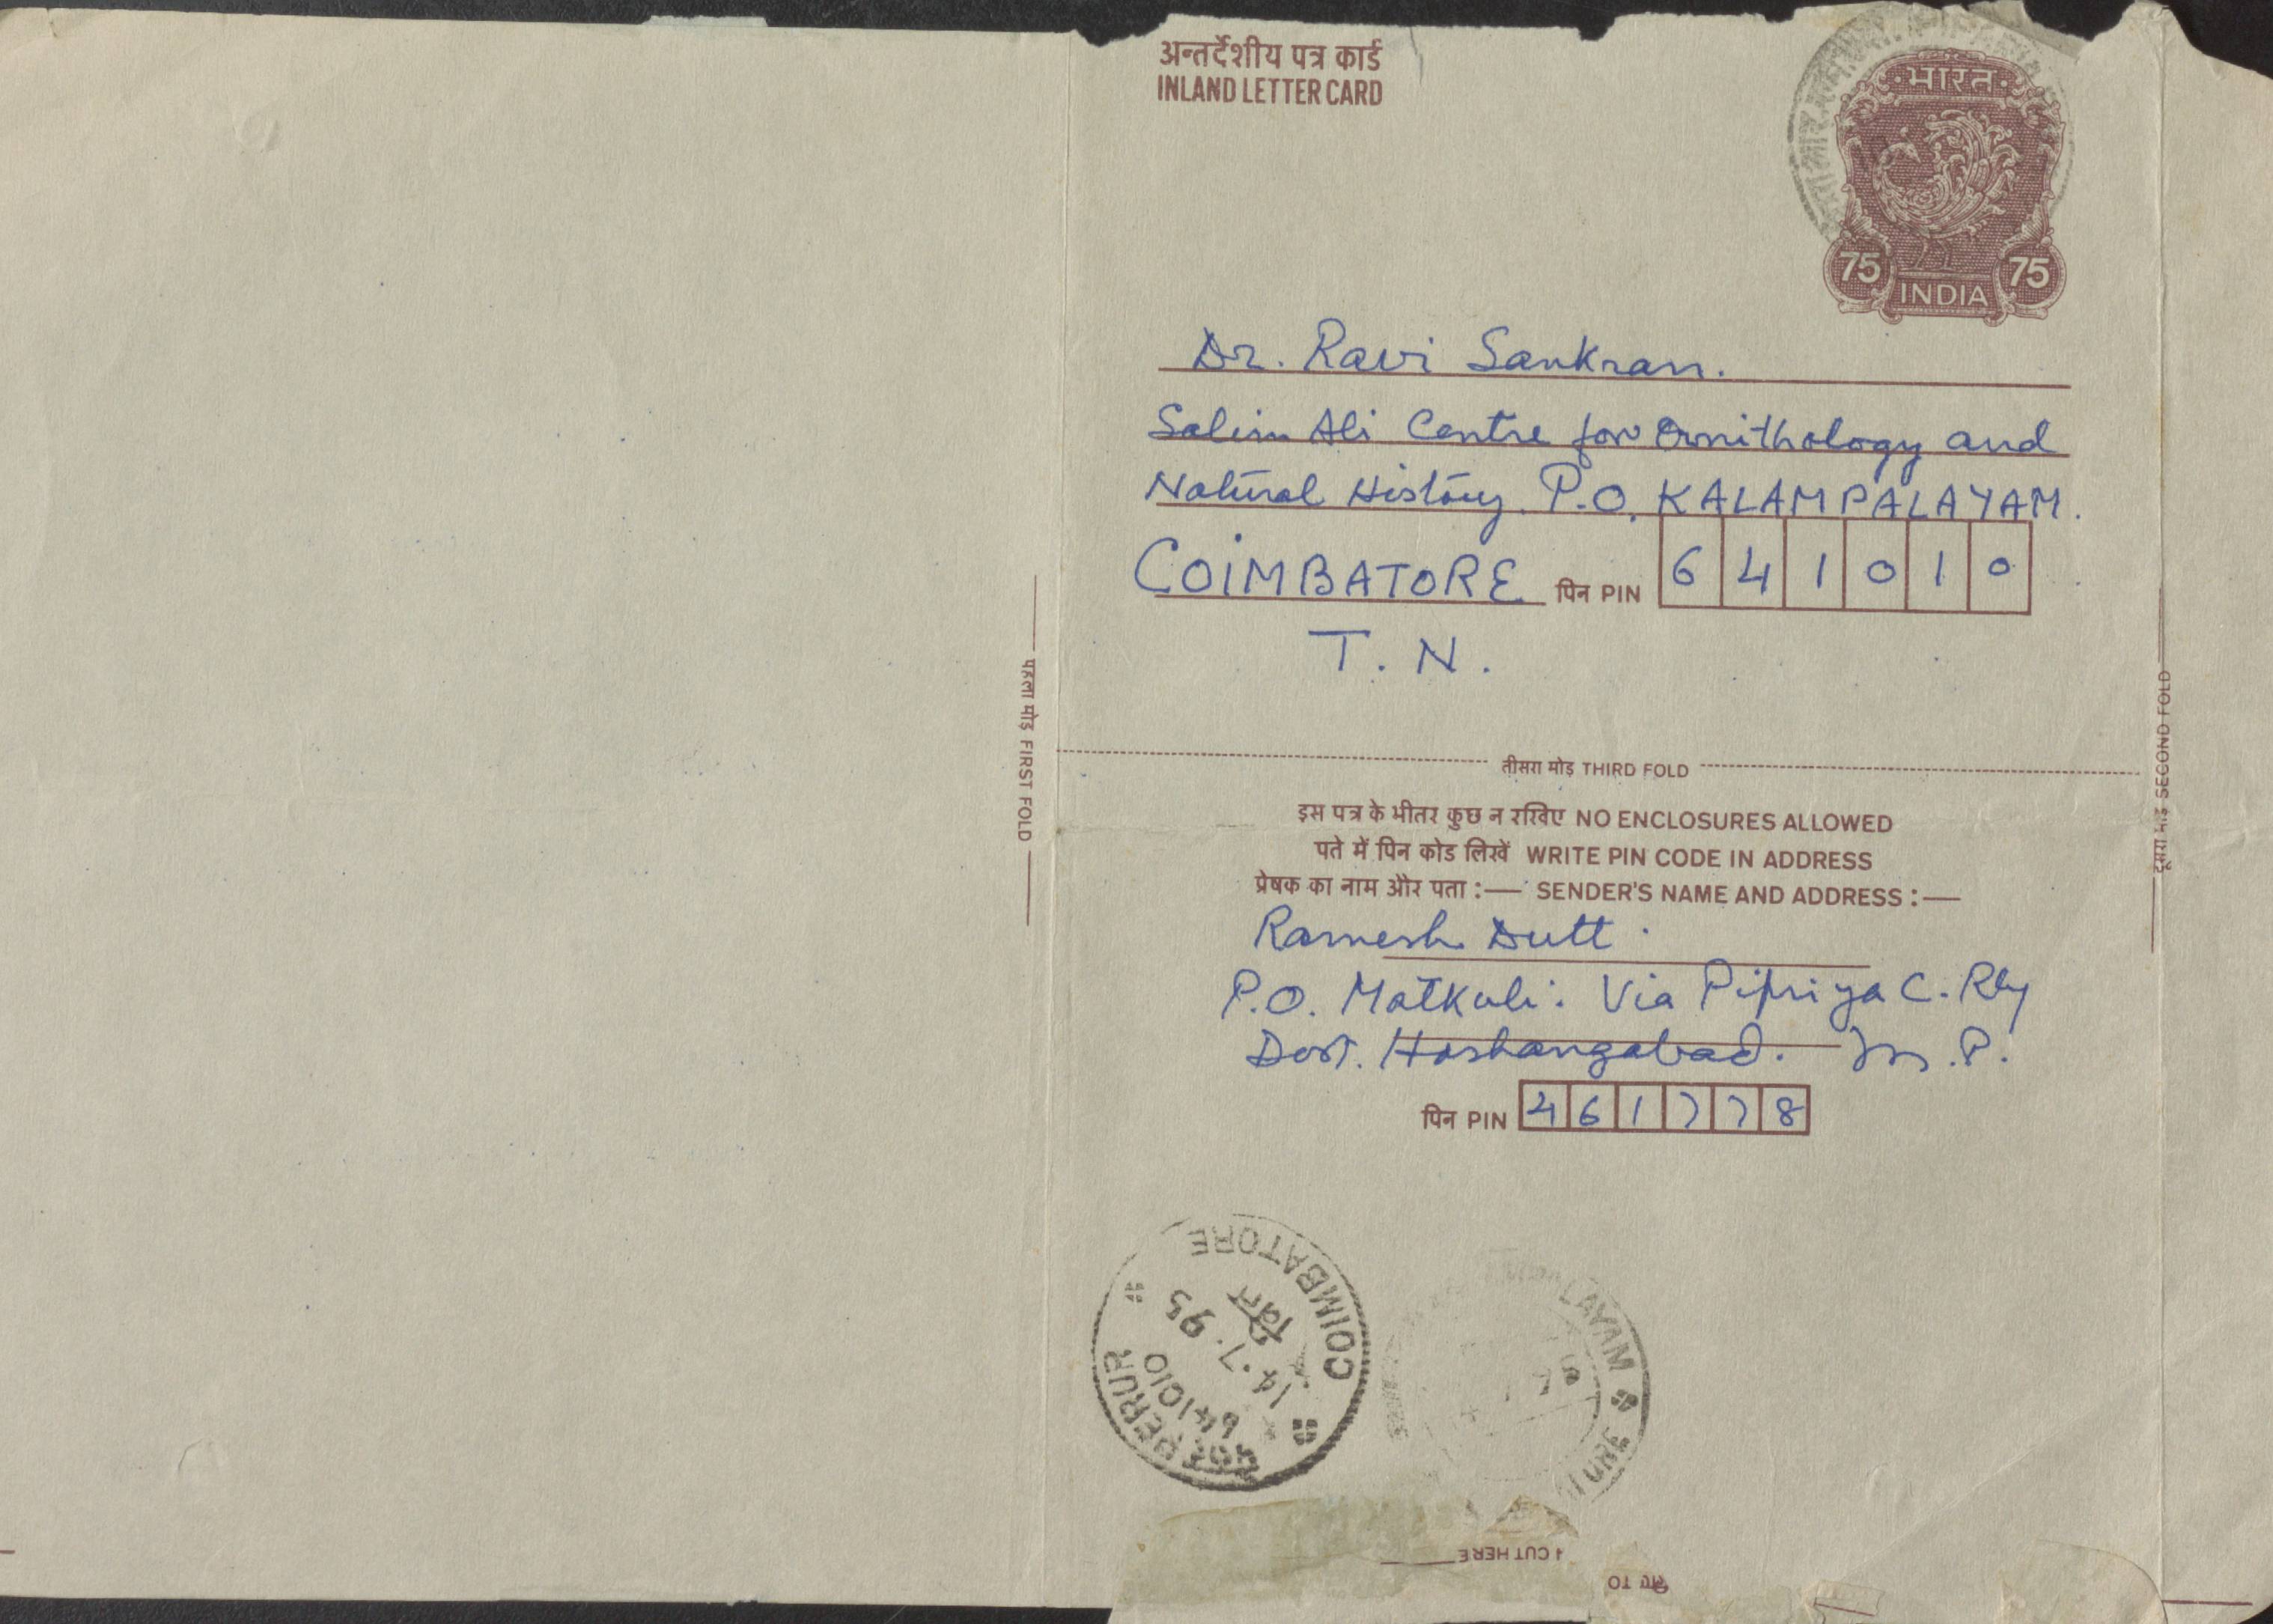 अन्तर्देशीय पत्र कार्ड
INLAND LETTER CARD
भारत
75 75
INDIA
Dr. Ravi Sankran.
Salim Ali Centre for Ornithology and
Natural History. P.O. KALAMPALAYAM.
COIMBATORE पिन PIN 641010
T. N.
पहला मोड़ FIRST FOLD
दूसरा मोड़ SECOND FOLD
तीसरा मोड़ THIRD FOLD
इस पत्र के भीतर कुछ न रखिए NO ENCLOSURES ALLOWED
पते में पिन कोड लिखें WRITE PIN CODE IN ADDRESS
प्रेषक का नाम और पता :— SENDER'S NAME AND ADDRESS :—
Ramesh Dutt.
P.O. Matkuli. Via Pipriya C. Rly
Dist. Hoshangabad. M.P.
पिन PIN 461778
COIMBATORE
पिन
14.7.95
641010
PERUR
LAYAM
TORE
CUT HERE
TO